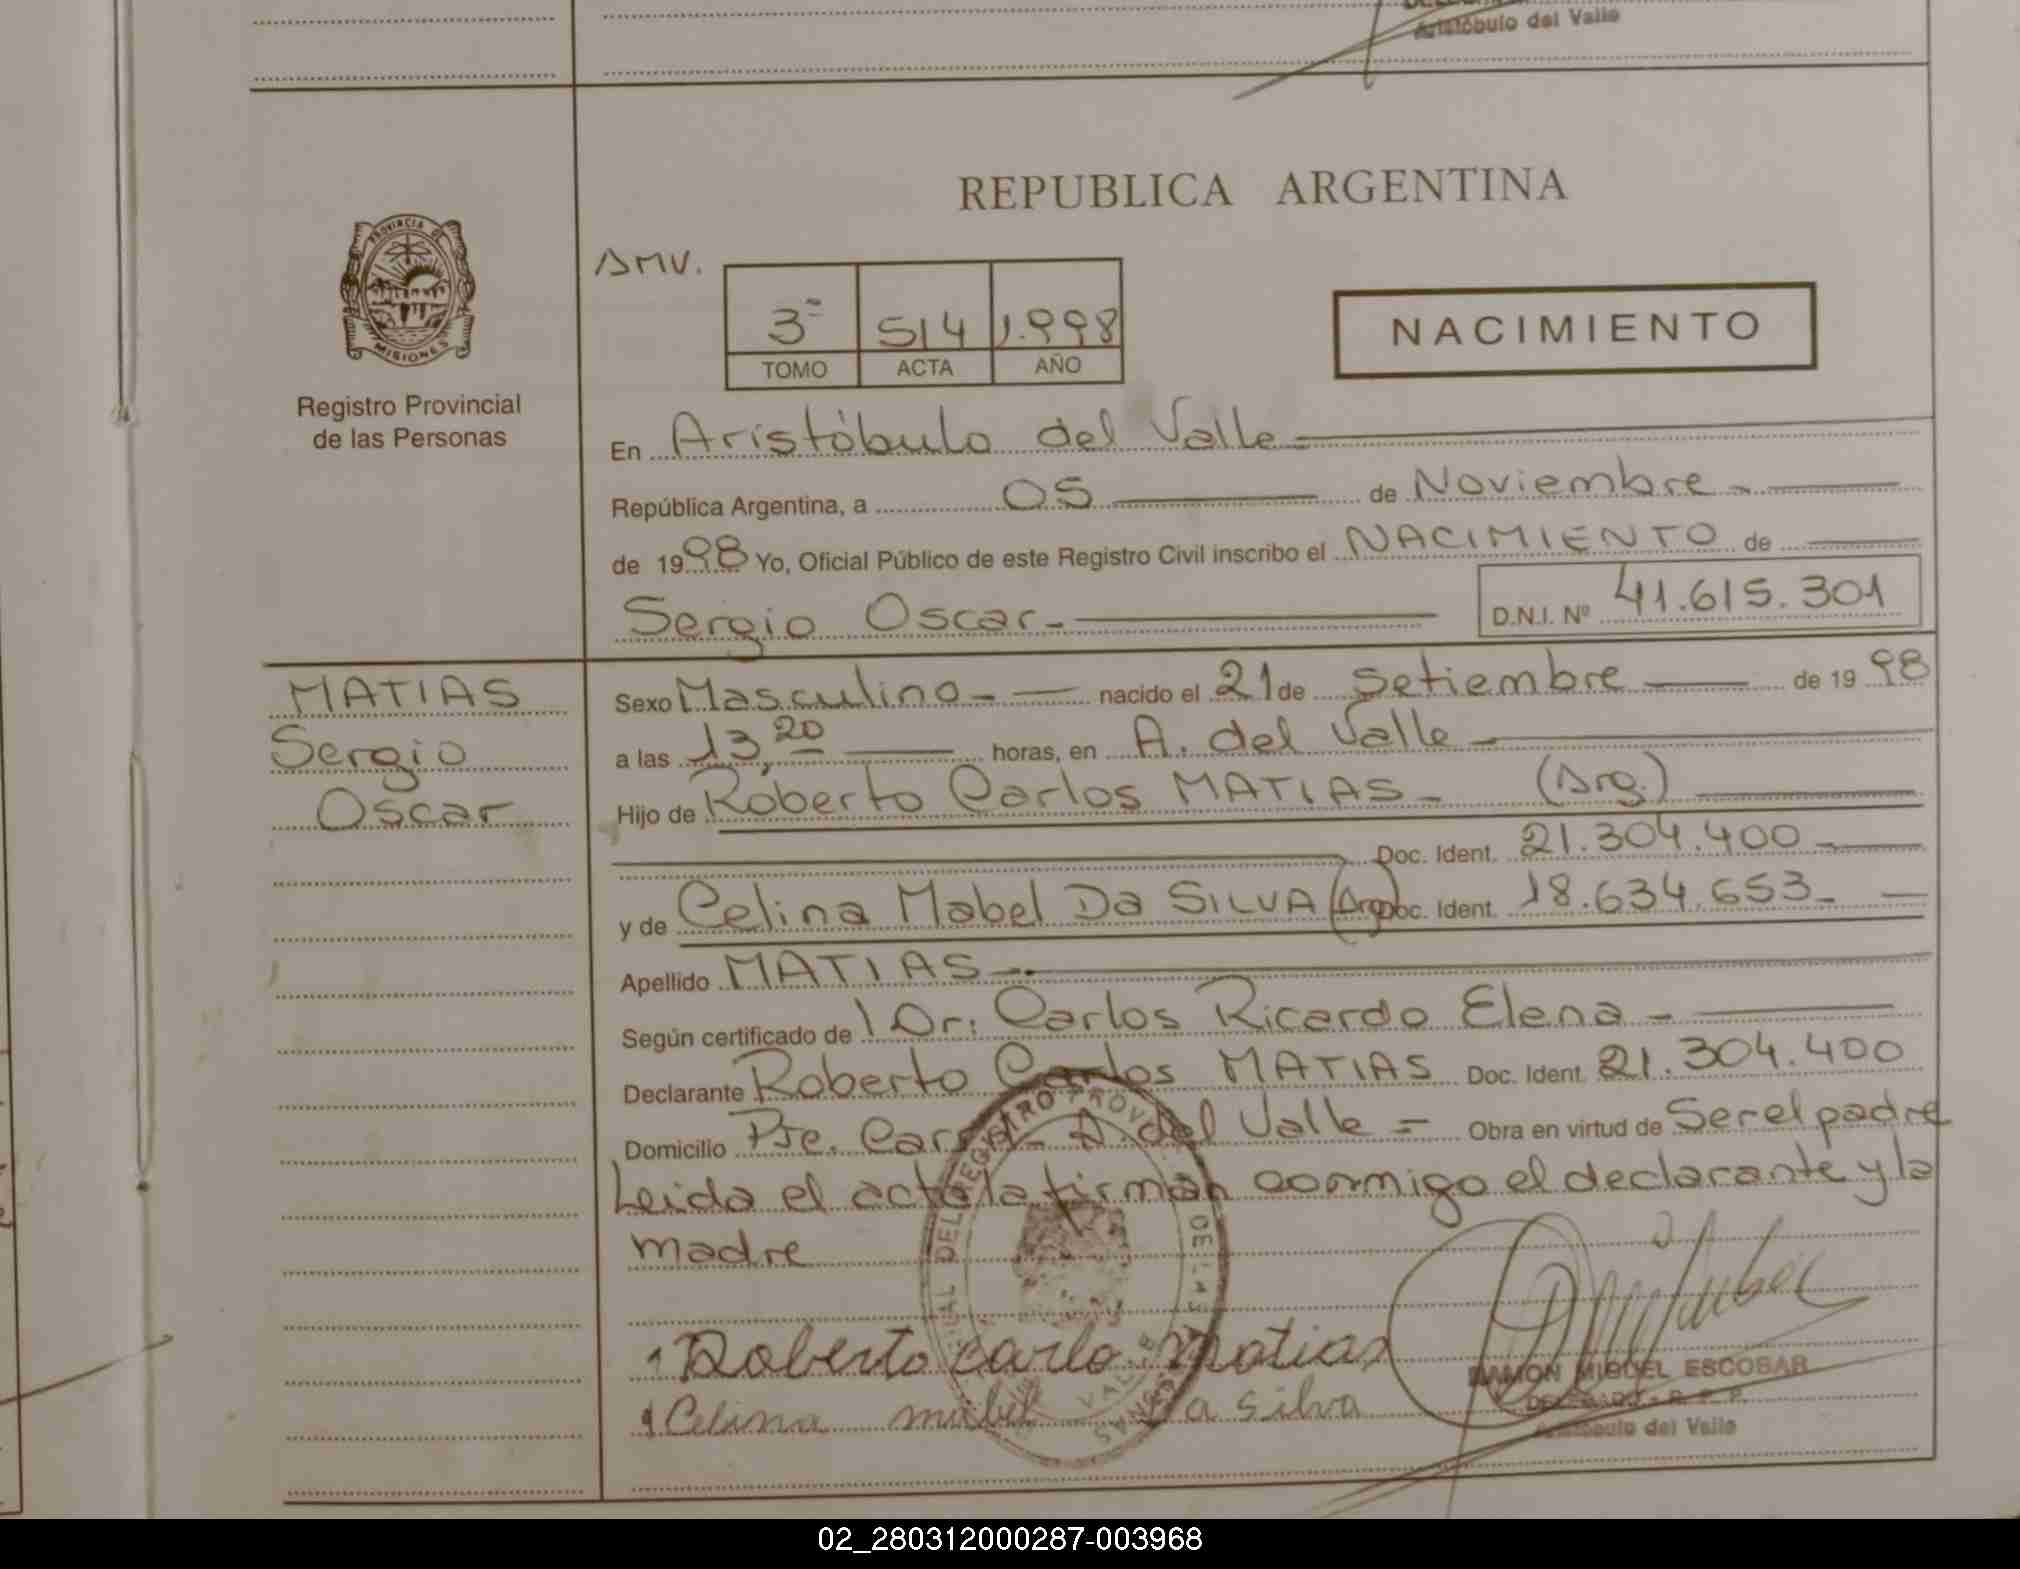 Aristóbulo del Valle
REPUBLICA ARGENTINA
PROVINCIA DE
MISIONES
Registro Provincial
de las Personas
3º 514 1.998
TOMO ACTA AÑO
NACIMIENTO
En Aristóbulo del Valle=
República Argentina, a 05 de Noviembre-
de 1998 Yo, Oficial Público de este Registro Civil inscribo el NACIMIENTO de
Sergio Oscar- D.N.I. Nº 41.615.301
MATIAS
Sergio
Oscar
Sexo Masculino- nacido el 21 de Setiembre de 1998
a las 13,20 horas, en A. del Valle-
Hijo de Roberto Carlos MATIAS- (Arg.)
Doc. Ident. 21.304.400-
y de Celina Mabel Da SILVA (Arg) Doc. Ident. 18.634.653-
Apellido MATIAS-.
Según certificado de l Dr: Carlos Ricardo Elena-
Declarante Roberto Carlos MATIAS Doc. Ident. 21.304.400
Domicilio Pje. A. del Valle = Obra en virtud de Ser el padre
Leida el acta la firman conmigo el declarante y la
madre
Roberto carlo matias
Celina mabel Da silva
RAMON MIGUEL ESCOBAR
DELEGADO - R. P. P.
Aristóbulo del Valle
02_280312000287-003968